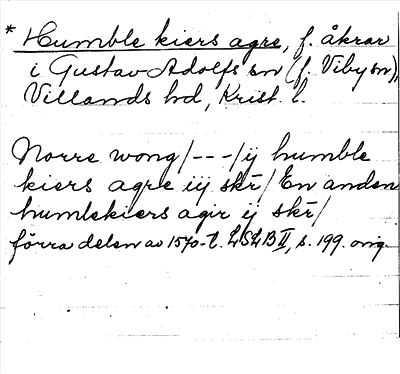 * Humble kiers agre, f. åkrar
i Gustav Adolfs sn (f. Viby sn),
Villands hd, Krist. l.
Norre wong/---/ij humble
kiers agre iij skr̄/ En anden
humlekiers agir ij skr̄/
förra delen av 1570-t. LSLB II, s. 199. orig.